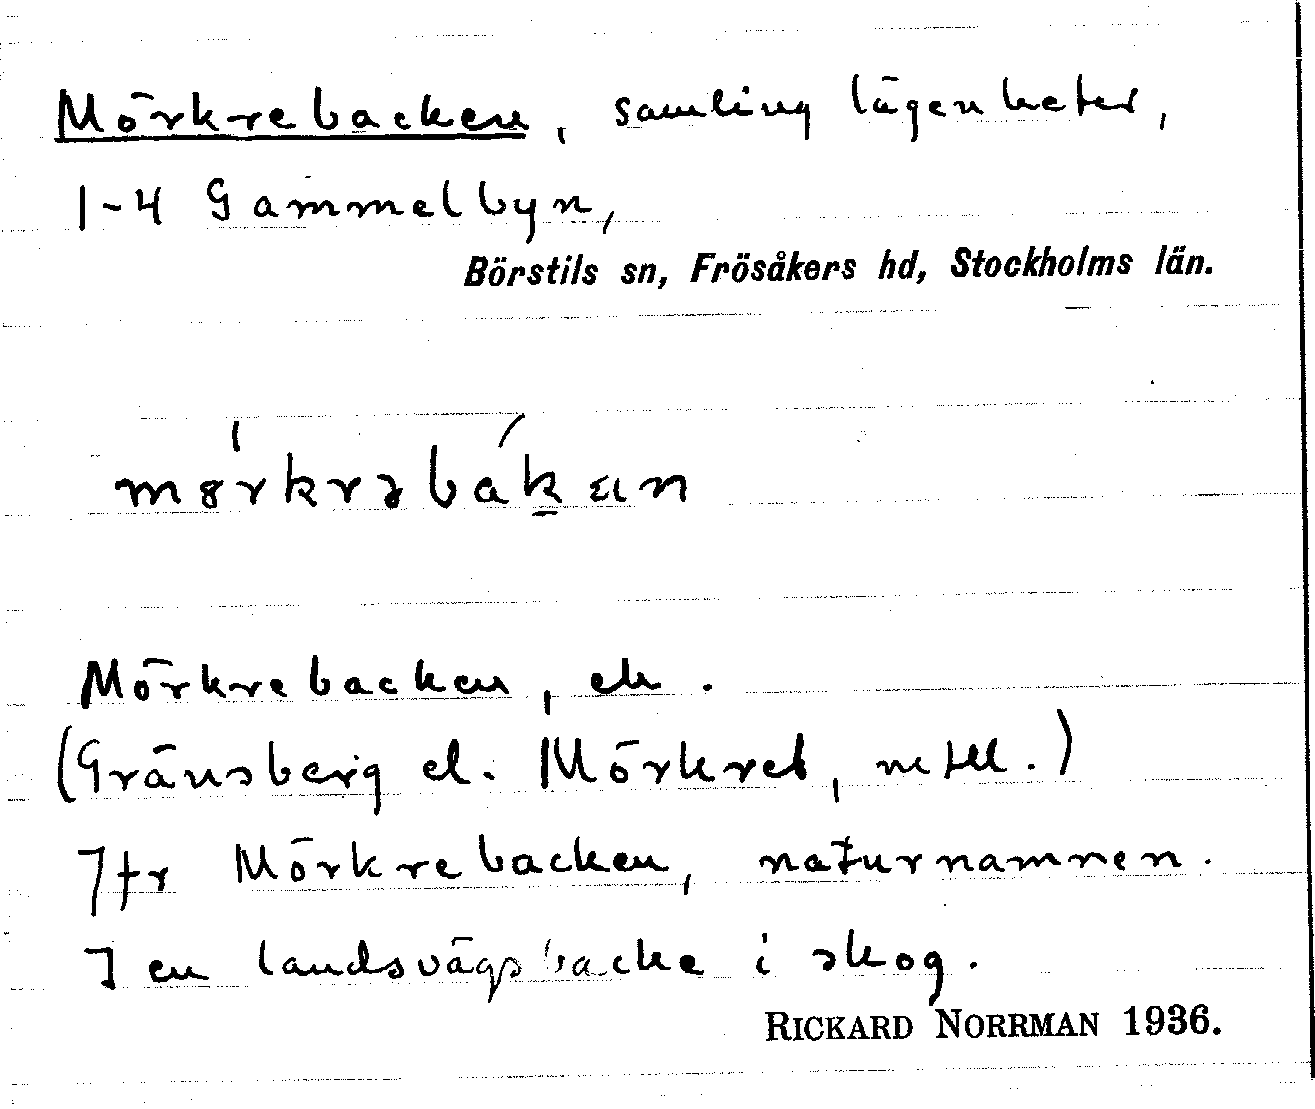 Mörkrebacken, samling lägenheter,
1-4 Gammelbyn,
Börstils sn, Frösåkers hd, Stockholms län.
Mörkrebacken, ek.
(Gränsberg el. Mörkret, mtll.)
Jfr Mörkrebacken, naturnamnen.
I en landsvägsbacke i skog.
RICKARD NORRMAN 1936.